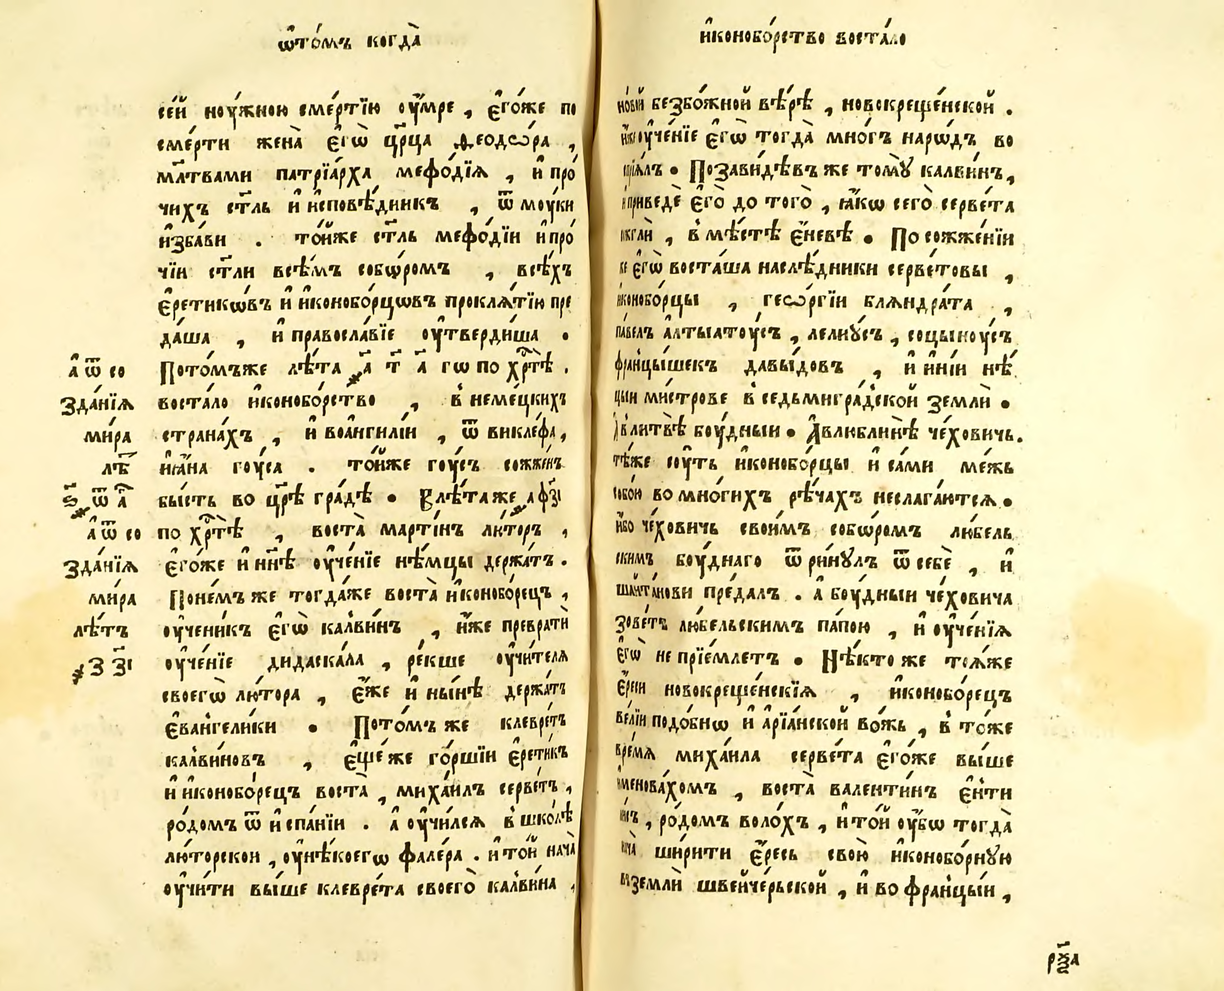 ѿто́мъ когда̀
се́й ноу́жною сме́ртїю оу҆́мре , є҆го́же по
сме́рти жена̀ є҆гѡ̀ цр҃ца ѳеодѡ́ра ,
мл҃твами патрїа́рха мефо́дїѧ , и҆ про
чихъ ст҃ль и҆ и҆сповѣ́дникъ , ѿ моу́ки
и҆зба́ви . то́йже ст҃ль мефо́дїи и҆ про
чїи ст҃ли всѣ́мъ собѡ́ромъ , всѣ́хъ
є҆ретикѡ́въ и҆ и҆коноборцѡвъ проклѧ́тїю пре
да́ша , и҆ правосла́вїе оу҆тверди́ша •
Пото́мъже лѣ́та ҂а҃ т҃ а҃ гѡ по хр҇тѣ̀ .
воста́ло и҆коноборство , в не́мецкихъ
страна́хъ , и҆ воа҆нгилїи , ѿ викле́фа ,
и҆ѡа́на гоу́са . то́йже гоу́съ сожже́нъ
бы́сть во цр҃ѣ гра́дѣ • Влѣ́та же ҂афз҃і
по хр҇тѣ̀ , воста̀ марти́нъ лю́торъ ,
є҆го́же и҆ нн҃ѣ оу҆че́нїе нѣ́мцы держа́тъ .
Поне́мъ же тогда́же воста̀ и҆коноборецъ ,
оу҆чени́къ є҆гѡ̀ ка́лвинъ , и҆́же превратѝ
оу҆че́нїе дидаска́ла , ре́кше оу҆чи́телѧ
своегѡ̀ лю́тора , є҆́же и҆ ны́нѣ держа́тъ
є҆ва́нгелики • Пото́мъ же клевре́тъ
ка́лвиновъ , є҆ще́ же го́ршїи є҆рети́къ
и҆ и҆коноборецъ воста̀ , миха́илъ серве́тъ ,
ро́домъ ѿ и҆спа́нїи . а҆ оу҆чи́лсѧ в шко́лѣ
лю́торской , оу҆ нѣ́коегѡ фале́ра . и҆ то́й нача̀
оу҆чи́ти вы́ше клевре́та своего̀ ка́лвина ,
а҆ ѿ со
зда́нїѧ
ми́ра
лѣ҇
҂ѕ҃ ѿ а҃
а҆ ѿ со
зда́нїѧ
ми́ра
лѣ́тъ
҂з з҃і
и҆коноборство воста́ло
но́вїй безбо́жной вѣ́рѣ , новокреще́нской .
оу҆че́нїе є҆гѡ̀ тогда̀ мно́гъ наро́дъ во
спрїѧ́лъ • Позави́дѣвъ же тому̀ ка́лвинъ ,
и҆ приведѐ є҆го̀ до того̀ , ꙗ҆́кѡ сего̀ серве́та
, в мѣ́стѣ є҆́невѣ • По сожже́нїи
же є҆гѡ̀ воста́ша наслѣ́дники серве́товы ,
и҆коноборцы , геѡ́ргїи блѧндра́та ,
па́велъ а҆лтыато́усъ , ле́лиусъ , соцыно́усъ
францы́шекъ давы́довъ , и҆ и҆ни́и нѣ́
цыи ми́строве в седмигра́дской землѝ •
А҆ в литвѣ̀ боу́дный • А҆ в лю́блинѣ чехо́вичь .
тѣ́же соу́ть и҆коноборцы и҆ са́ми ме́жь
собо́ю во мно́гихъ рѣ́чахъ неслага́ютсѧ •
и҆́бо чехо́вичь свои́мъ собѡ́ромъ лю́бель
скимъ боу́днаго ѿри́нулъ ѿ себѐ , и҆
шаи҆та́нови пре́далъ . а҆ боу́дныи чехо́вича
зове́тъ лю́бельскимъ па́пою , и҆ оу҆че́нїѧ
є҆гѡ̀ не прїе́млетъ • Нѣ́кто же тоѧ́же
є҆́реси новокреще́нскїѧ , и҆коноборецъ
ве́лїи подо́бнѡ и҆ а҆рїа́нской во́жь , в то́же
вре́мѧ миха́ила серве́та є҆го́же вы́ше
и҆менова́хомъ , воста̀ валенти́нъ є҆нти
, ро́домъ воло́хъ , и҆ то́й оу҆́бѡ тогда̀
нача̀ шири́ти є҆́ресь свою̀ и҆коноборную
в землѝ швейче́рьской , и҆ во фра́нцыи ,
рѯ҃а